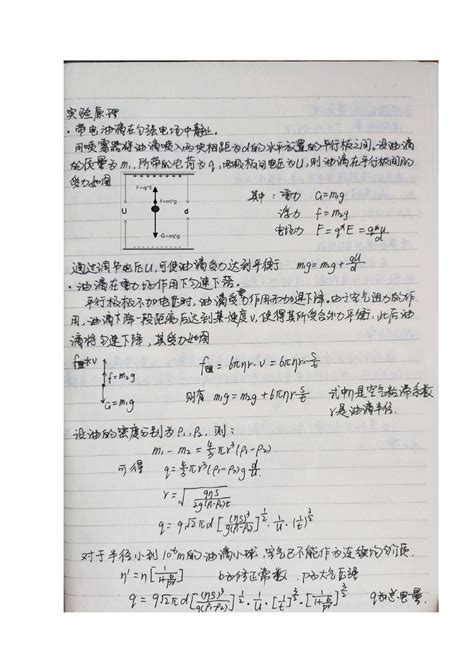 实验原理
·带电油滴在匀强电场中静止。
用喷雾器将油滴喷入两块相距为d的水平放置的平行板之间。设油滴
的质量为m₁,所带的电荷为q,两极板间电压为U,则油滴在平行板间的
受力如图
F=q*E
f=m₂g
U
d
G=m₁g
其中:重力 G=m₁g
浮力 f=m₂g
电场力 F=q*E=q*U/d
通过调节电压U,可使油滴受力达到平衡 m₁g=m₂g+qU/d
·油滴在重力场作用下匀速下降。
平行极板不加电压时,油滴受重力作用而加速下降。由于空气阻力的作
用,油滴下降一段距离后达到某速度V,使得其所受合外力平衡,此后油
滴将匀速下降,其受力如图
f=m₂g
G=m₁g
f=6πηr·v=6πηr·S/t
则有 m₁g=m₂g+6πηr·S/t 式中η是空气粘滞系数
r是油滴半径.
设油的密度分别为ρ₁,ρ₂,则:
m₁-m₂=4/3πr³(ρ₁-ρ₂)
可得 q=4/3πr³(ρ₁-ρ₂)g d/U
r=√(9ηS/2g(ρ₁-ρ₂)t)
q=9√2πd[(ηS)³/g(ρ₁-ρ₂)]^(1/2)·1/U·(1/t)^(3/2)
对于半径小到10⁻⁶m的油滴小球,空气已不能作为连续均匀介质.
η'=η[1/(1+b/pr)] b为修正常数,p为大气压强
q=9√2πd[(ηS)³/g(ρ₁-ρ₂)]^(1/2)·1/U·[1/t]^(3/2)·[1/(1+b/pr)]^(3/2) q为总电量.